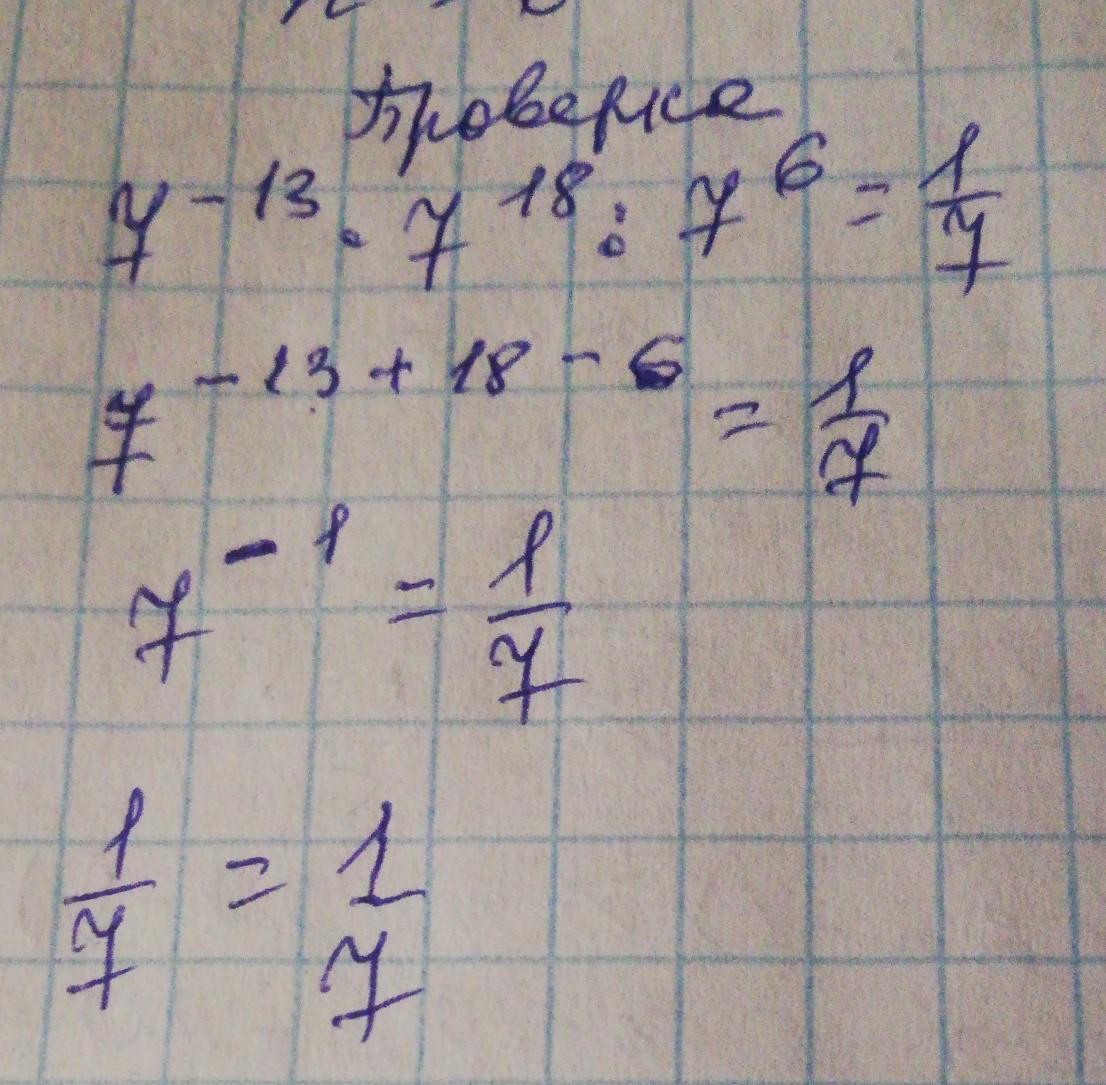 Проверка
7^{-13} · 7^{18} : 7^{6} = \frac{1}{7}
7^{-13+18-6} = \frac{1}{7}
7^{-1} = \frac{1}{7}
\frac{1}{7} = \frac{1}{7}